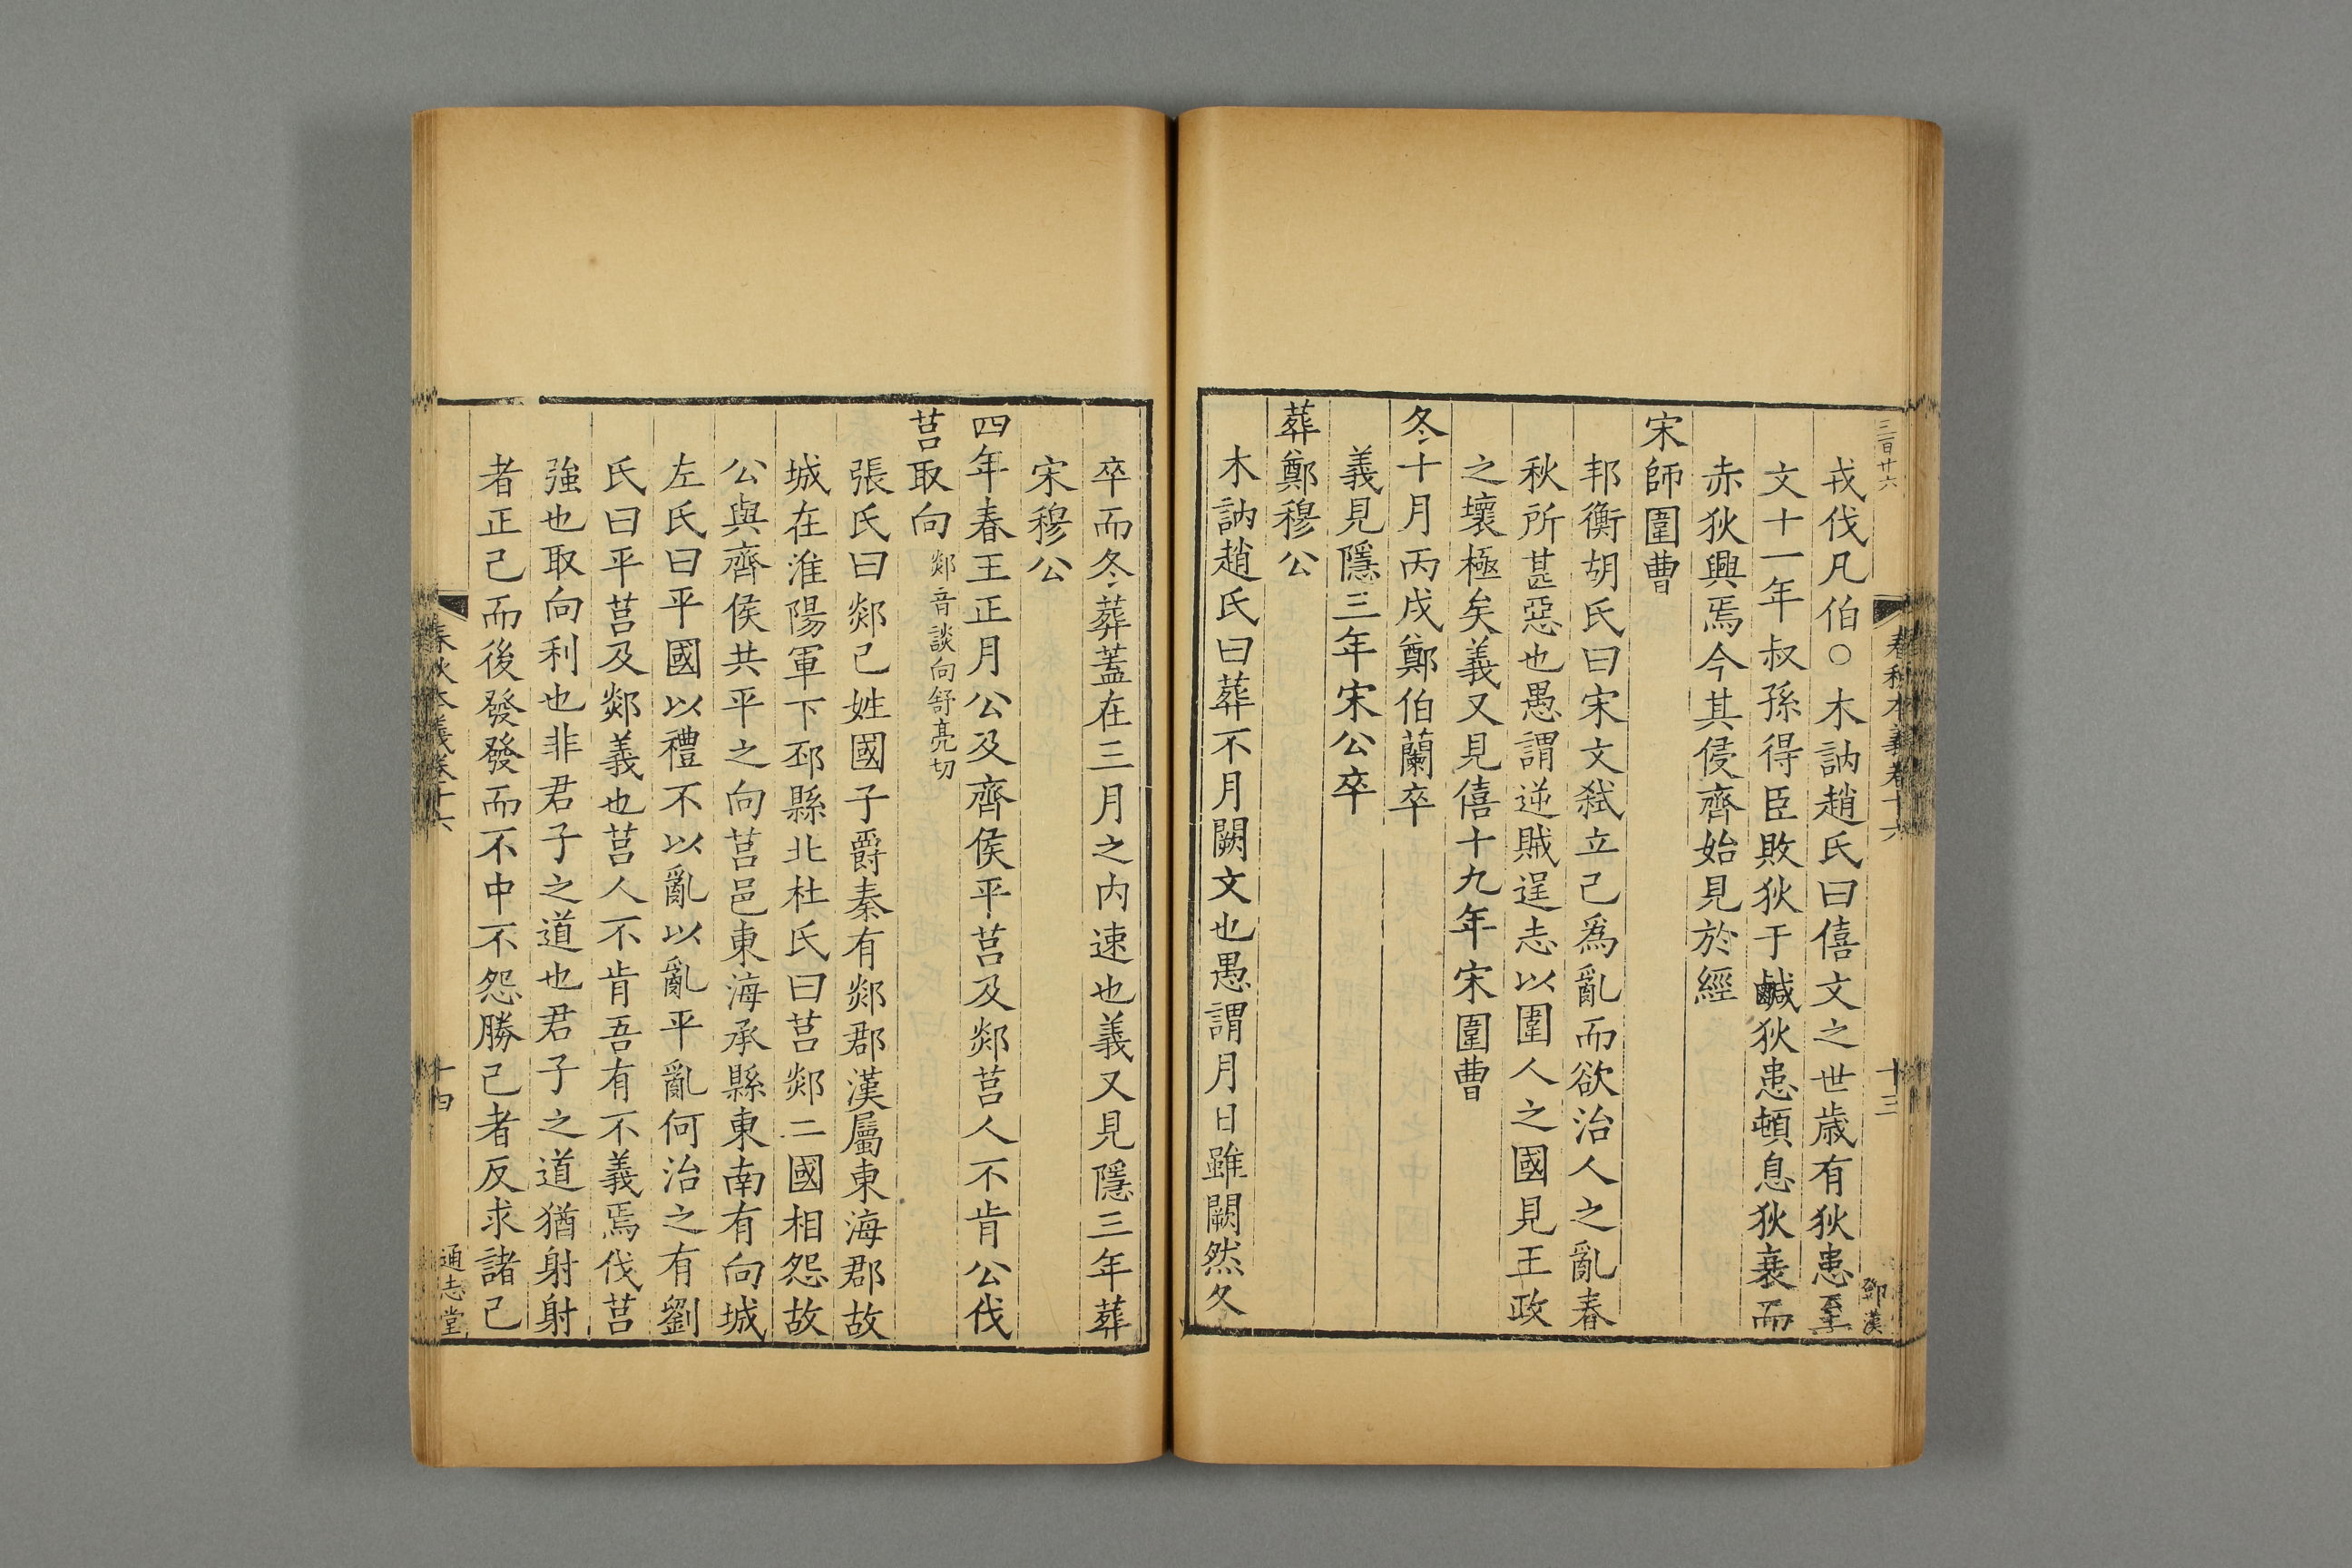 三百廿六
春秋本義卷十六
十三
鄧漢
戎伐凡伯○木訥趙氏曰僖文之世歲有狄患至
文十一年叔孫得臣敗狄于鹹狄患頓息狄衰而
赤狄興焉今其侵齊始見於經
宋師圍曹
邦衡胡氏曰宋文弑立己爲亂而欲治人之亂春
秋所甚惡也愚謂逆賊逞志以圍人之國見王政
之壞極矣義又見僖十九年宋圍曹
冬十月丙戌鄭伯蘭卒
義見隱三年宋公卒
葬鄭穆公
木訥趙氏曰葬不月闕文也愚謂月日雖闕然夂
卒而冬葬蓋在三月之内速也義又見隱三年葬
宋穆公
四年春王正月公及齊侯平莒及郯莒人不肯公伐
莒取向郯音談向舒亮切
張氏曰郯己姓國子爵秦有郯郡漢屬東海郡故
城在淮陽軍下邳縣北杜氏曰莒郯二國相怨故
公與齊侯共平之向莒邑東海承縣東南有向城
左氏曰平國以禮不以亂以亂平亂何治之有劉
氏曰平莒及郯義也莒人不肯吾有不義焉伐莒
強也取向利也非君子之道也君子之道猶射射
者正己而後發發而不中不怨勝己者反求諸己
春秋本義卷十六
十四
通志堂